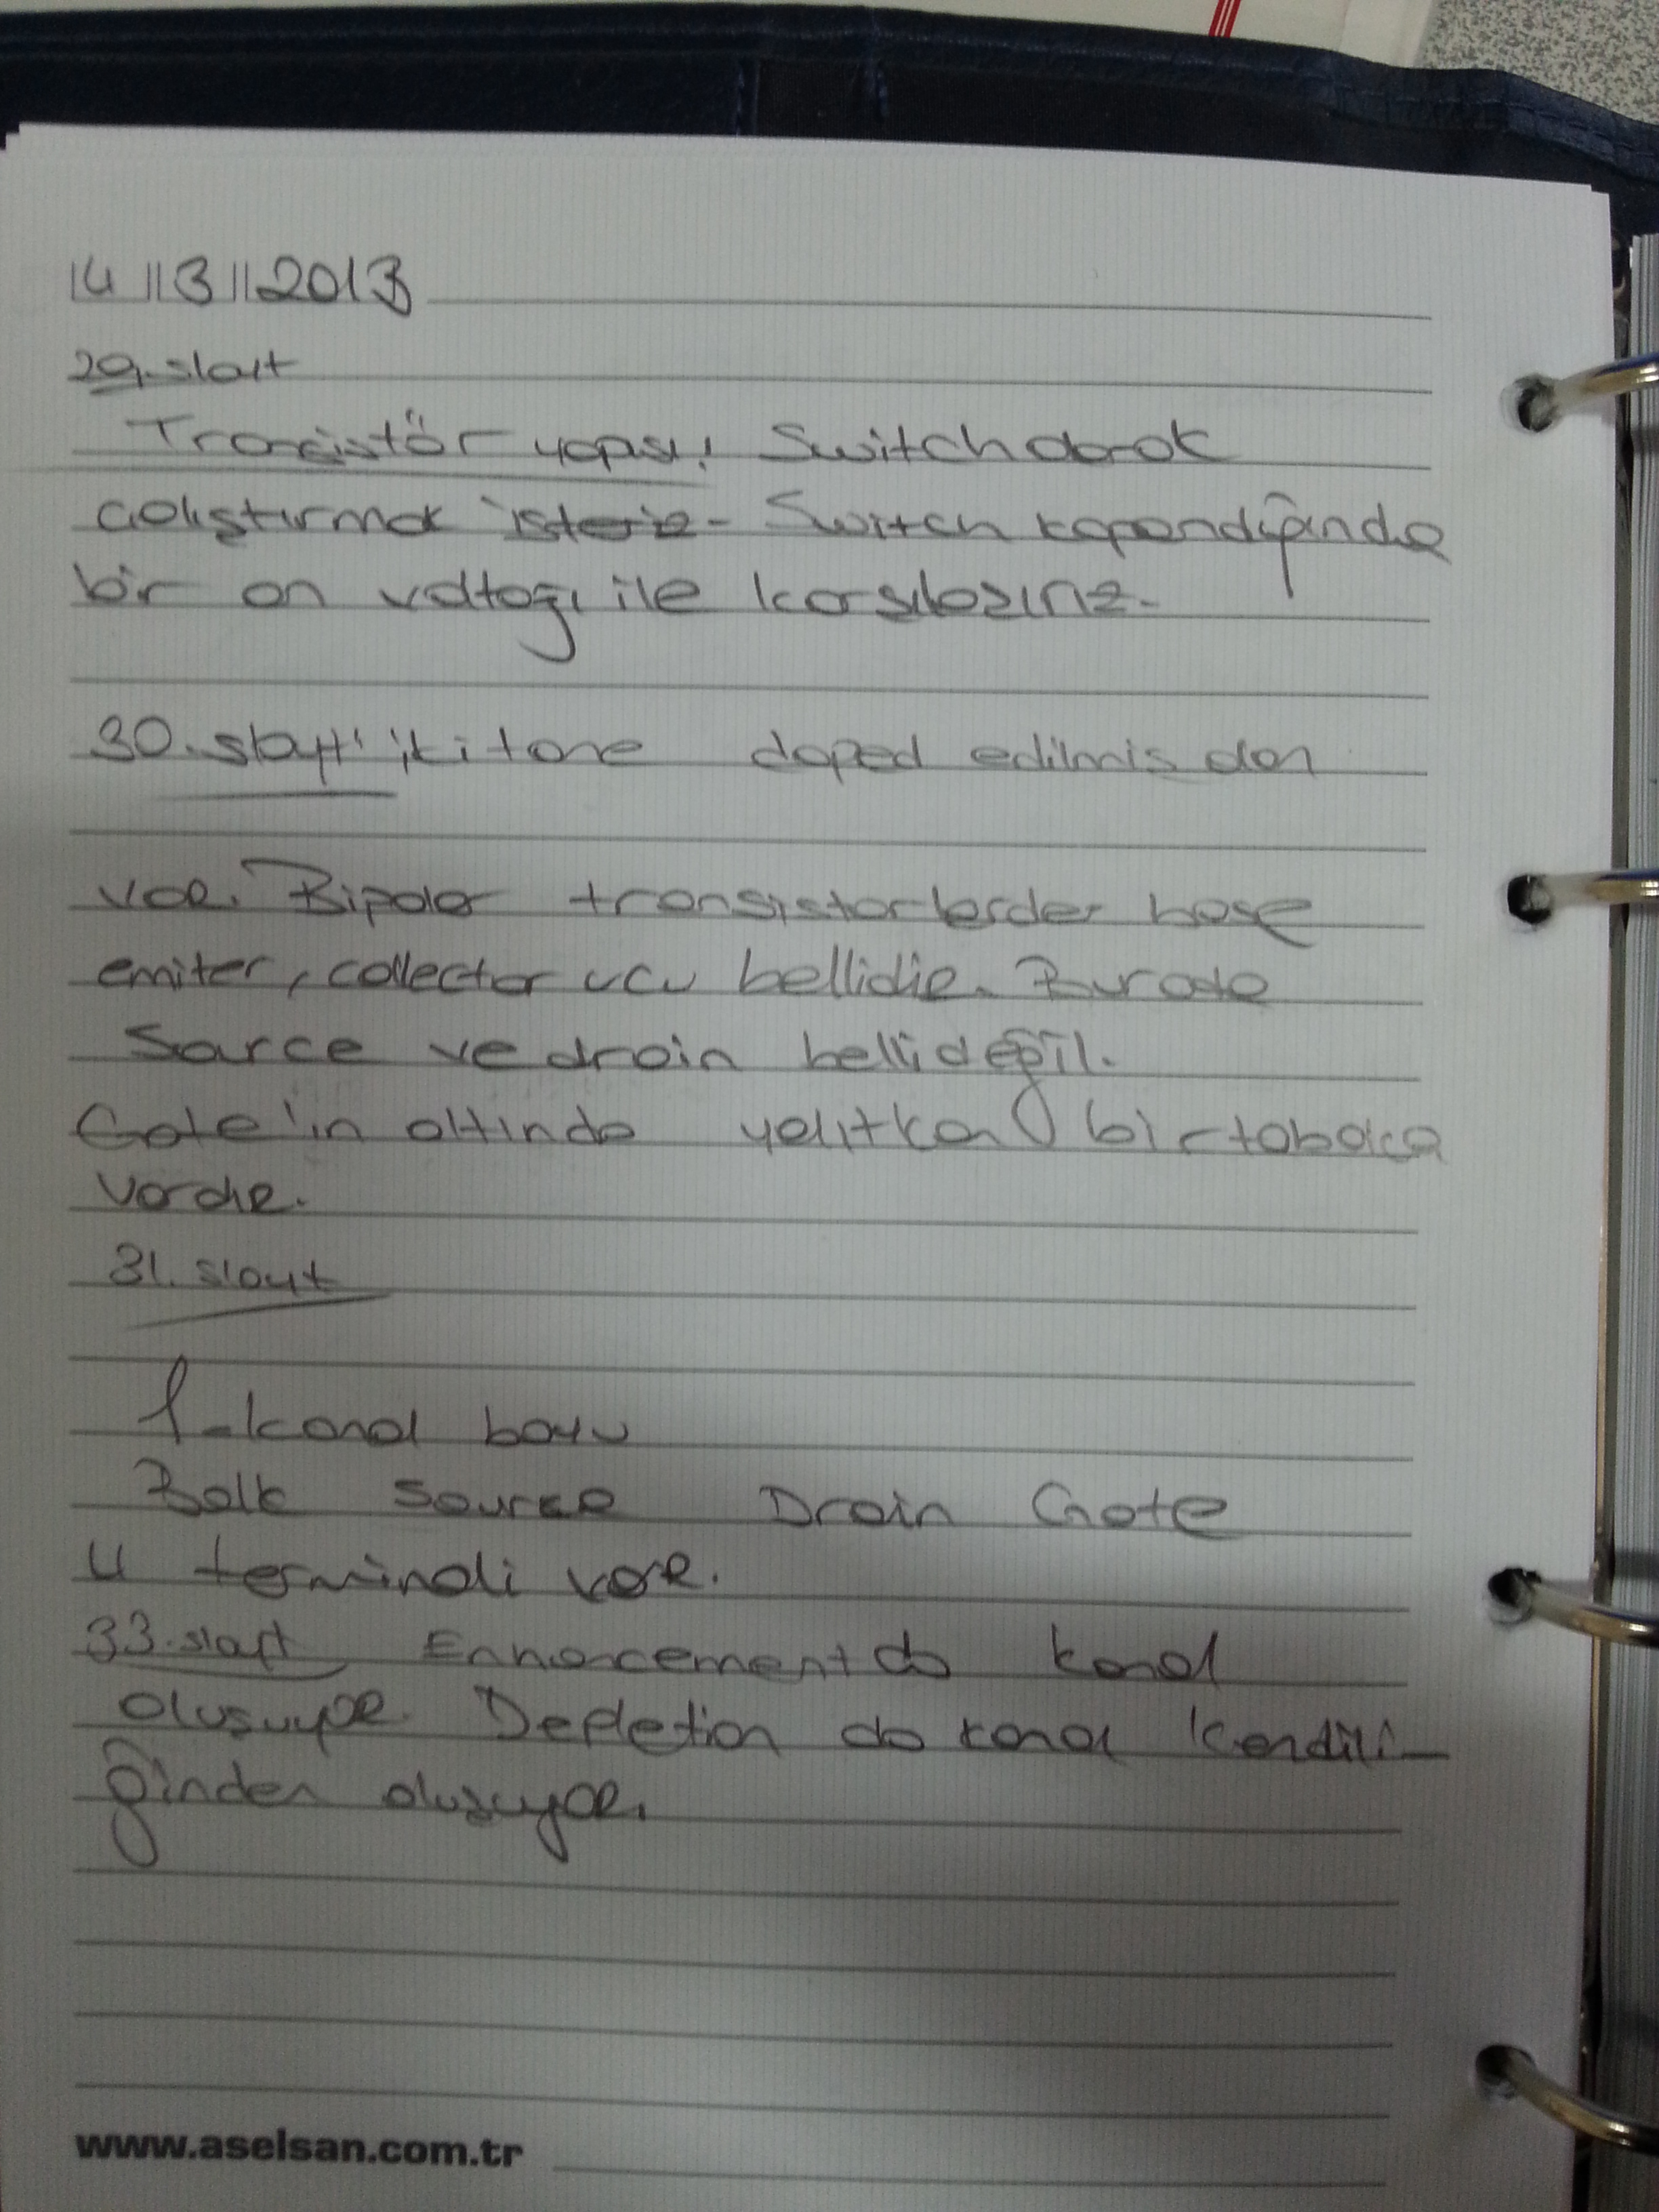 14||3||2013
29. slayt
Transistör yapısı: Switch olarak
çalıştırmak isteriz. Switch kapandığında
bir on voltajı ile karşılaşırız.
30. slayt: iki tane doped edilmis alan
var. Bipolar transistorlarda base
emiter, collector ucu bellidir. Burada
Sarce ve drain belli değil.
Gate'in altında yalıtkan bir tabaka
vardır.
31. slayt
l-kanal boyu
Balk Source Drain Gate
4 terminali var.
33. slayt Enhancement da kanal
oluşuyor. Depletion da kanal kendili-
ğinden oluşuyor.
www.aselsan.com.tr